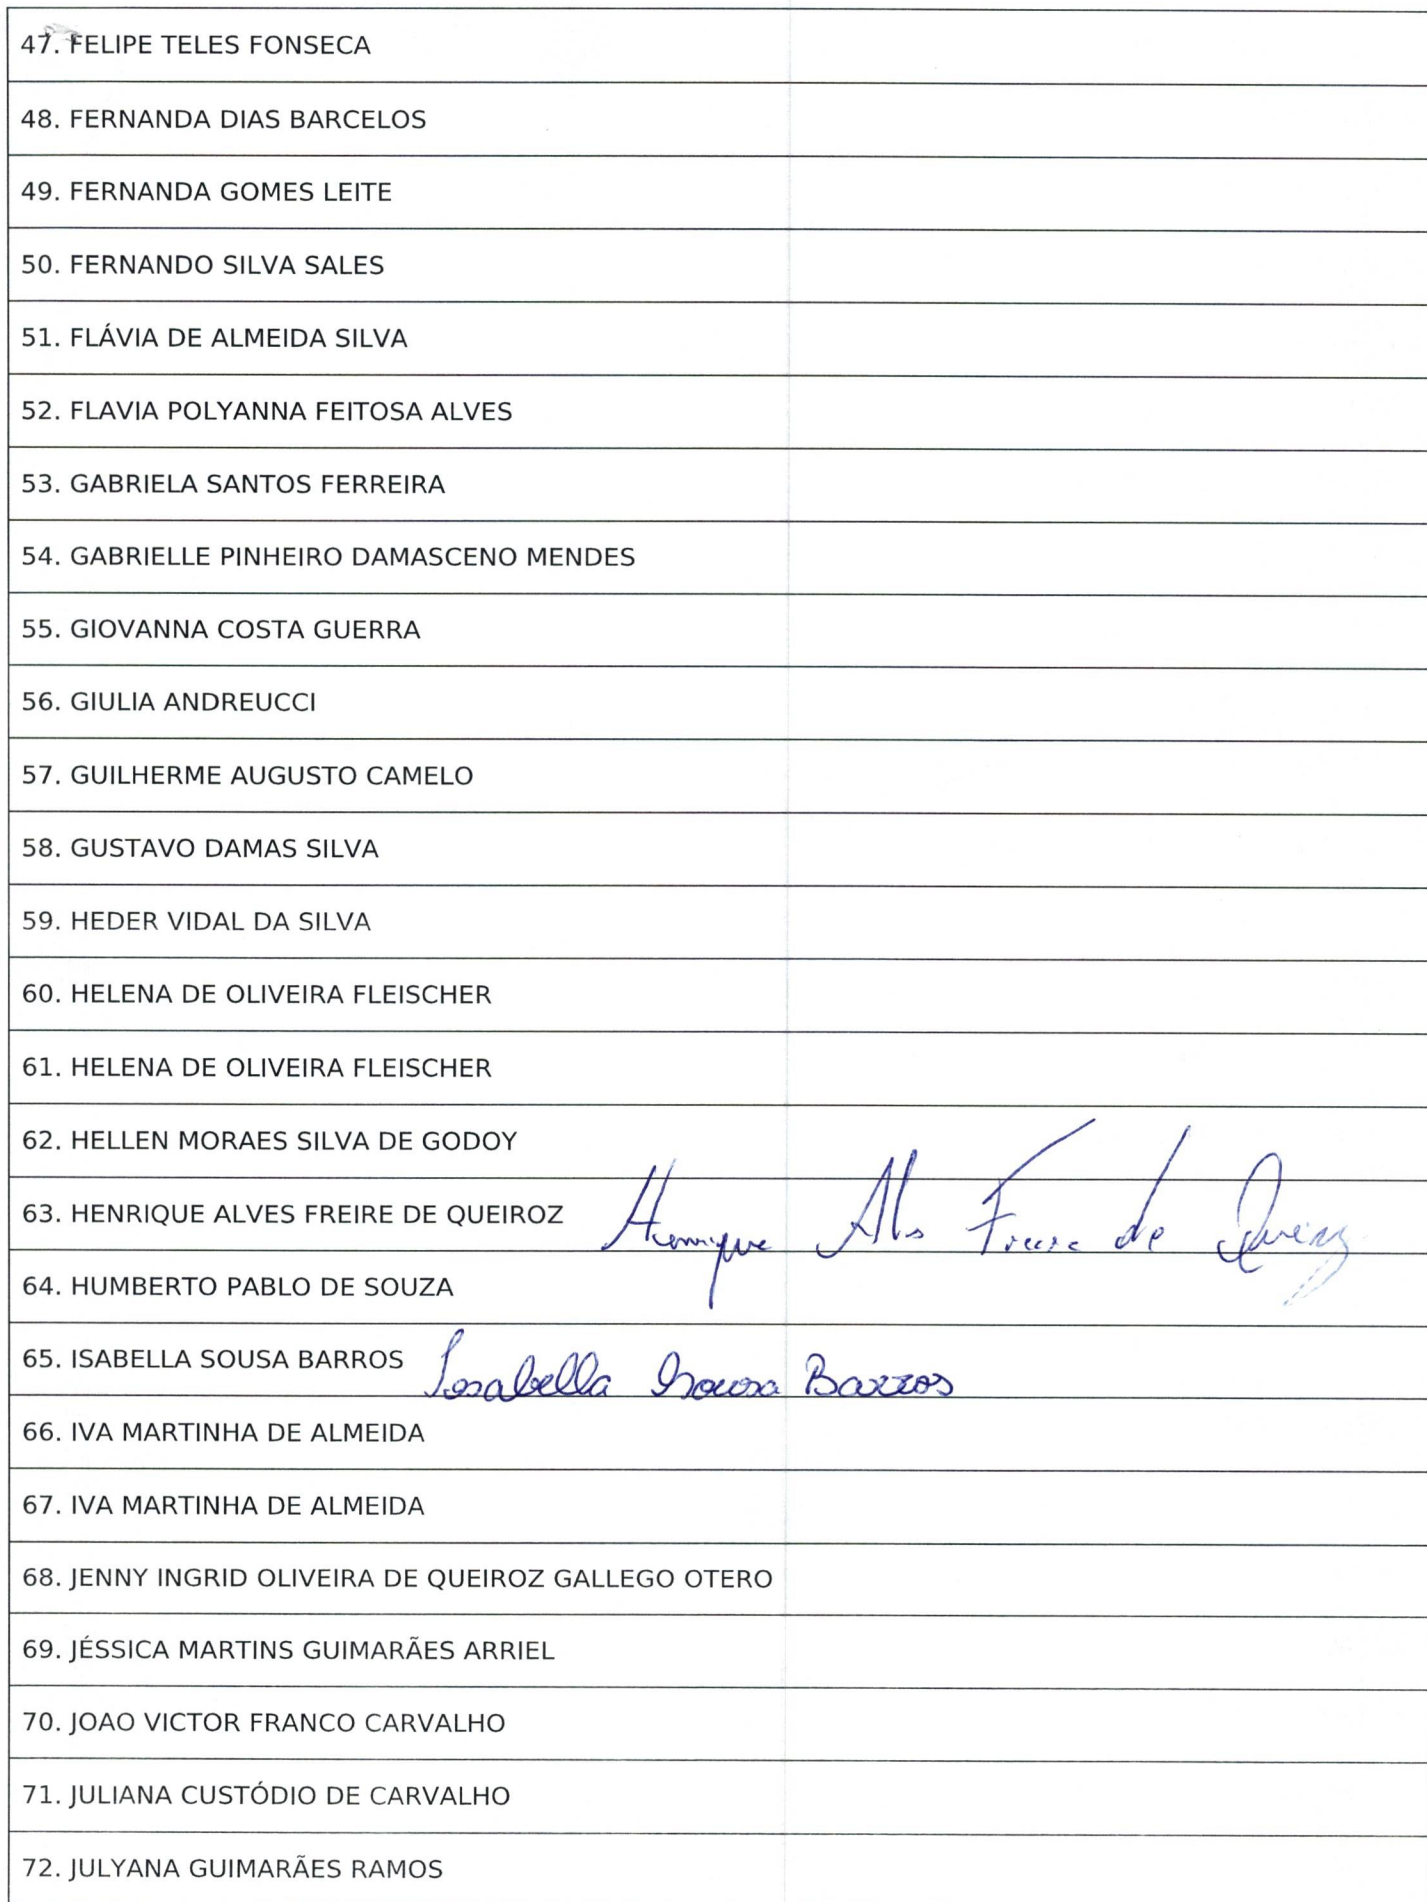 47. FELIPE TELES FONSECA
48. FERNANDA DIAS BARCELOS
49. FERNANDA GOMES LEITE
50. FERNANDO SILVA SALES
51. FLÁVIA DE ALMEIDA SILVA
52. FLAVIA POLYANNA FEITOSA ALVES
53. GABRIELA SANTOS FERREIRA
54. GABRIELLE PINHEIRO DAMASCENO MENDES
55. GIOVANNA COSTA GUERRA
56. GIULIA ANDREUCCI
57. GUILHERME AUGUSTO CAMELO
58. GUSTAVO DAMAS SILVA
59. HEDER VIDAL DA SILVA
60. HELENA DE OLIVEIRA FLEISCHER
61. HELENA DE OLIVEIRA FLEISCHER
62. HELLEN MORAES SILVA DE GODOY
63. HENRIQUE ALVES FREIRE DE QUEIROZ Henrique Alvs Freire de Queiroz
64. HUMBERTO PABLO DE SOUZA
65. ISABELLA SOUSA BARROS Isabella Sousa Barros
66. IVA MARTINHA DE ALMEIDA
67. IVA MARTINHA DE ALMEIDA
68. JENNY INGRID OLIVEIRA DE QUEIROZ GALLEGO OTERO
69. JÉSSICA MARTINS GUIMARÃES ARRIEL
70. JOAO VICTOR FRANCO CARVALHO
71. JULIANA CUSTÓDIO DE CARVALHO
72. JULYANA GUIMARÃES RAMOS